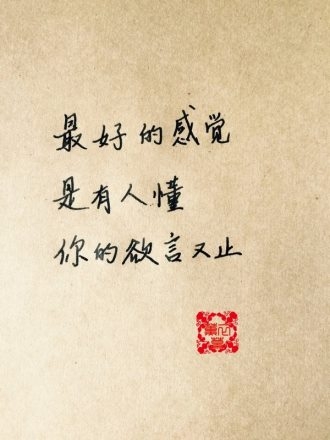 最好的感觉
是有人懂
你的欲言又止